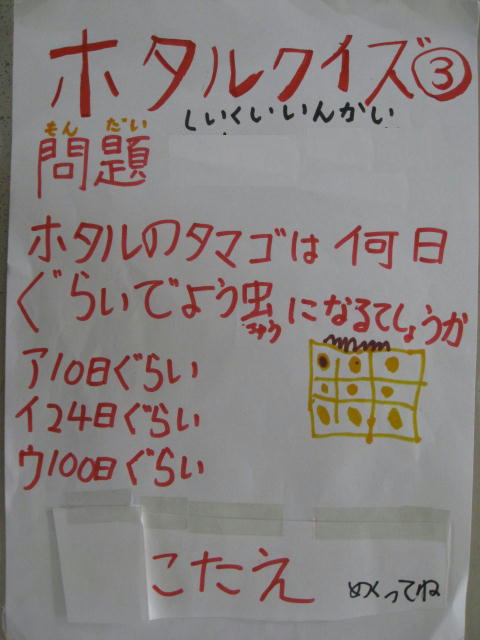 ホタルクイズ③
しいくいいんかい
もんだい
問題
ホタルのタマゴは何日
ぐらいでよう虫になるでしょうか
ちゅう
ア10日ぐらい
イ24日ぐらい
ウ100日ぐらい
こたえ めくってね